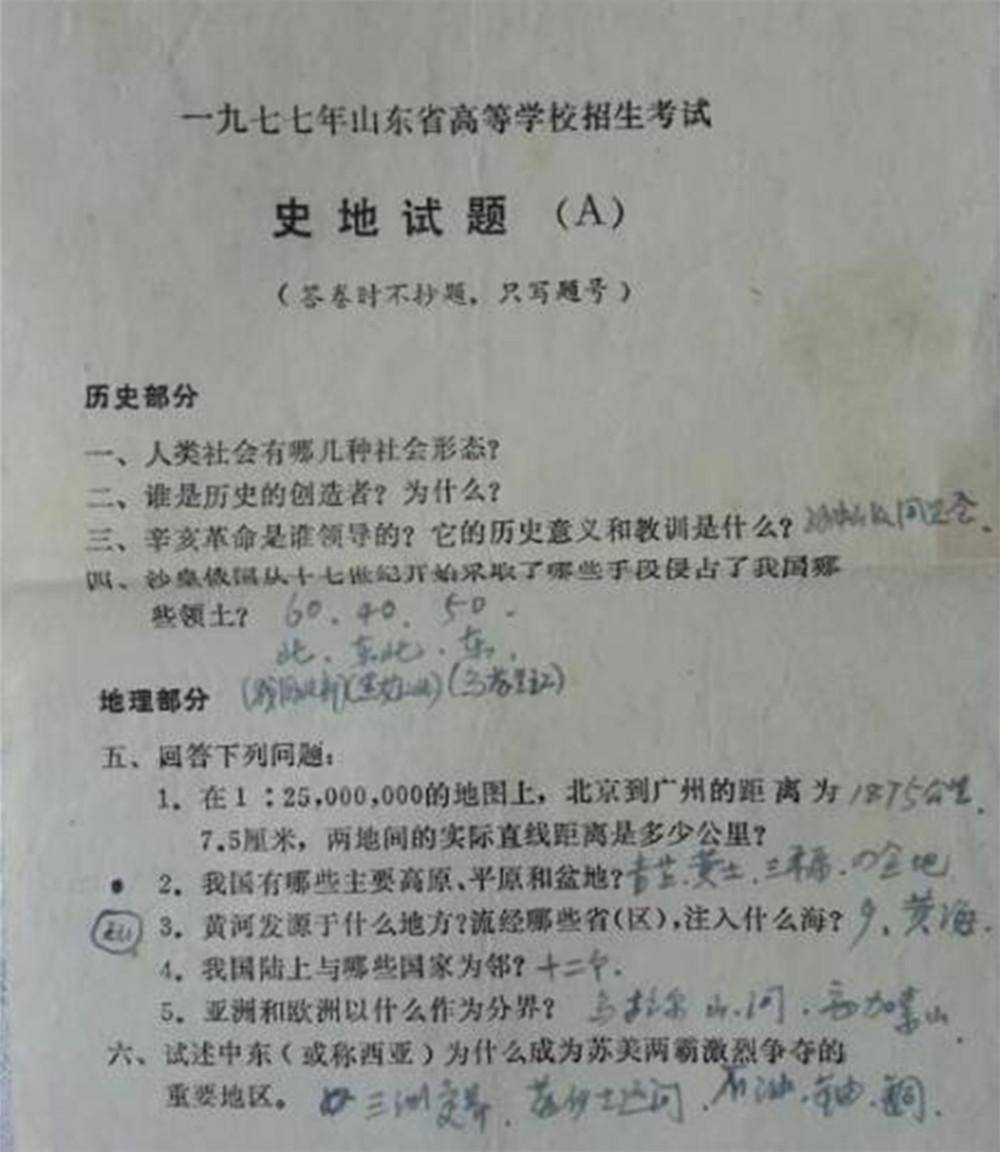 一九七七年山东省高等学校招生考试
史地试题 (A)
(答卷时不抄题，只写题号)
历史部分
一、人类社会有哪几种社会形态?
二、谁是历史的创造者? 为什么?
三、辛亥革命是谁领导的? 它的历史意义和教训是什么?
四、沙皇俄国从十七世纪开始采取了哪些手段侵占了我国哪
些领土? 60. 40. 50.
北. 东北. 东.
地理部分
五、回答下列问题:
1. 在1:25,000,000的地图上, 北京到广州的距离为 1875公里.
7.5厘米, 两地间的实际直线距离是多少公里?
2. 我国有哪些主要高原、平原和盆地?
3. 黄河发源于什么地方?流经哪些省(区),注入什么海? 黄海.
4. 我国陆上与哪些国家为邻? 十二个.
5. 亚洲和欧洲以什么作为分界? 乌拉尔山.河.高加索山
六、试述中东(或称西亚)为什么成为苏美两霸激烈争夺的
重要地区。 三洲交界. 石油.